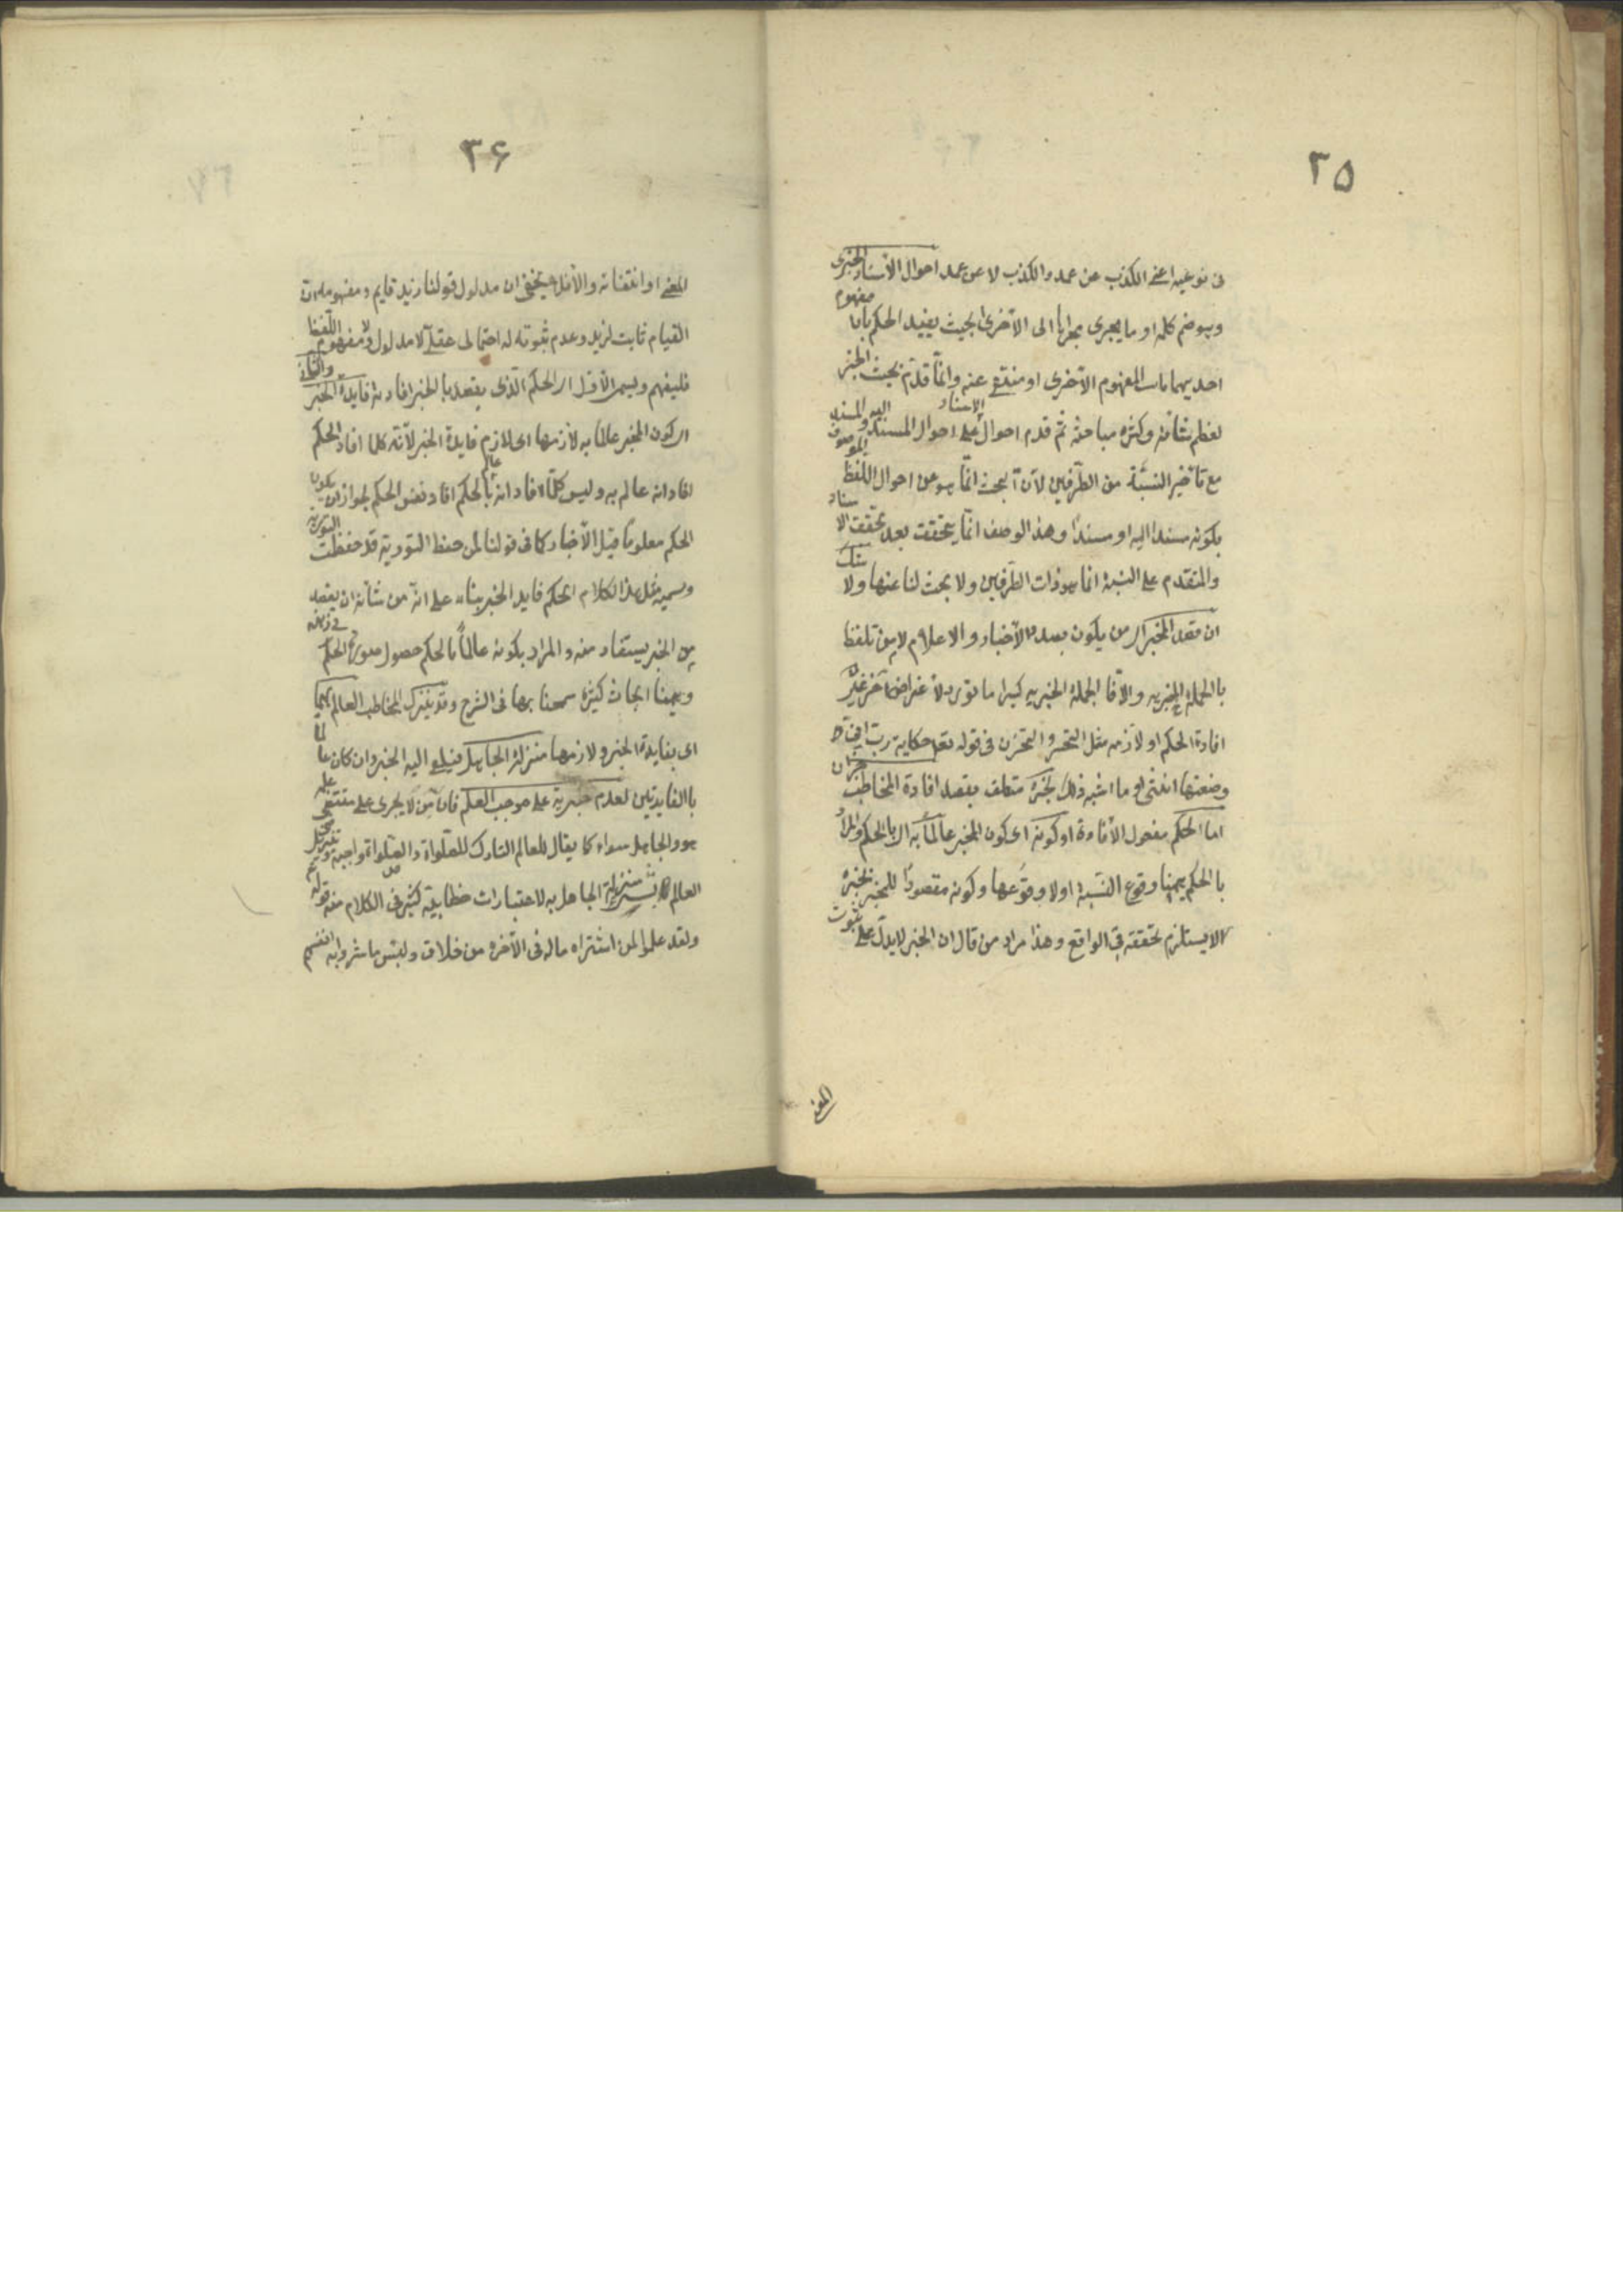 ٣٥
فى نوعيه اعنى الكذب عن عمد والكذب لا عن عمد احوال الأسناد الخبرى
وهو ضم كلمه او ما يجرى مجراها الى الأخرى بحيث يفيد الحكم بان مفهوم
احديهما ثابت لمفهوم الأخرى او منتفى عنه وانما قدم بحث الخبر
لعظم شأنه وكثره مباحثه ثم قدم احوال الاسناد على احوال المسند اليه والمسند
مع تأخير النسبة من الطرفين لأن البحث انما هو عن احوال اللفظ الموصوف
بكونه مسندا اليه او مسندا وهذا الوصف انما يتحقق بعد تحقق الاسناد
والمتقدم على النسبة انما هو ذات الطرفين ولا بحث لنا عنها ولا شك
ان قصد المخبر اى من يكون بصدد الأخبار والاعلام لا من تلفظ
بالجملة الخبريه والا فالجملة الخبريه كثيرا ما تورد لأغراض آخر غير
افادة الحكم او لازمه مثل التحسر والتحزن فى قوله تعه حكاية رب انى
وضعتها انثى و ما اشبه ذلك بخبره متعلق بقصد افادة المخاطب خبر ان
اما الحكم مفعول الأفادة او كونه اى كون المخبر عالما به اى بالحكم والمراد
بالحكم هيهنا وقوع النسبة او لا وقوعها وكونه مقصودا للمخبر بخبره
لا يستلزم تحققه فى الواقع وهذا مراد من قال ان الخبر لا يدل على ثبوت
المعنى
٣۶
المعنى او انتفائه والا فلا يخفى ان مدلول قولنا زيد قايم ومفهومه ان
القيام ثابت لزيد وعدم ثبوته له احتمالى عقلى لا مدلول ولا مفهوم اللفظ
فليفهم ويسمى الأول اى الحكم الذى يقصد بالخبر افادته فايدة الخبر والثانى
اى كون المخبر عالما به لازمها اى لازم فايدة الخبر لأنه كلما افاد الحكم
افاد انه عالم به وليس كلما افاد انه عالم بالحكم افاد نفس الحكم لجواز ان يكون
الحكم معلوما قبل الأخبار كما فى قولنا لمن حفظ التورية قد حفظت التورية
وتسمية مثل هذا الكلام الحكم فايد الخبر بناء على انه من شأنه ان يقصد
من الخبر يستفاد منه والمراد بكونه عالما بالحكم حصول صورة الحكم فى ذهنه
وهيهنا ابحاث كثيره سمحنا بها فى الشرح وقد ينزل المخاطب العالم بهما
اى بفايدة الخبر ولازمها منزلة الجاهل فيلقى اليه الخبر وان كان عالما
بالفايدتين لعدم جريه على موجب العلم فان من لا يجرى على مقتضى علمه
هو والجاهل سواء كما يقال للعالم التارك للصلواة الصلواة واجبة وتنزيل
العالم بالشئ منزلة الجاهل به لاعتبارات خطابية كثير فى الكلام منه قوله
ولقد علموا لمن اشتراه ماله فى الآخرة من خلاق ولبئس ما شروا به انفسهم